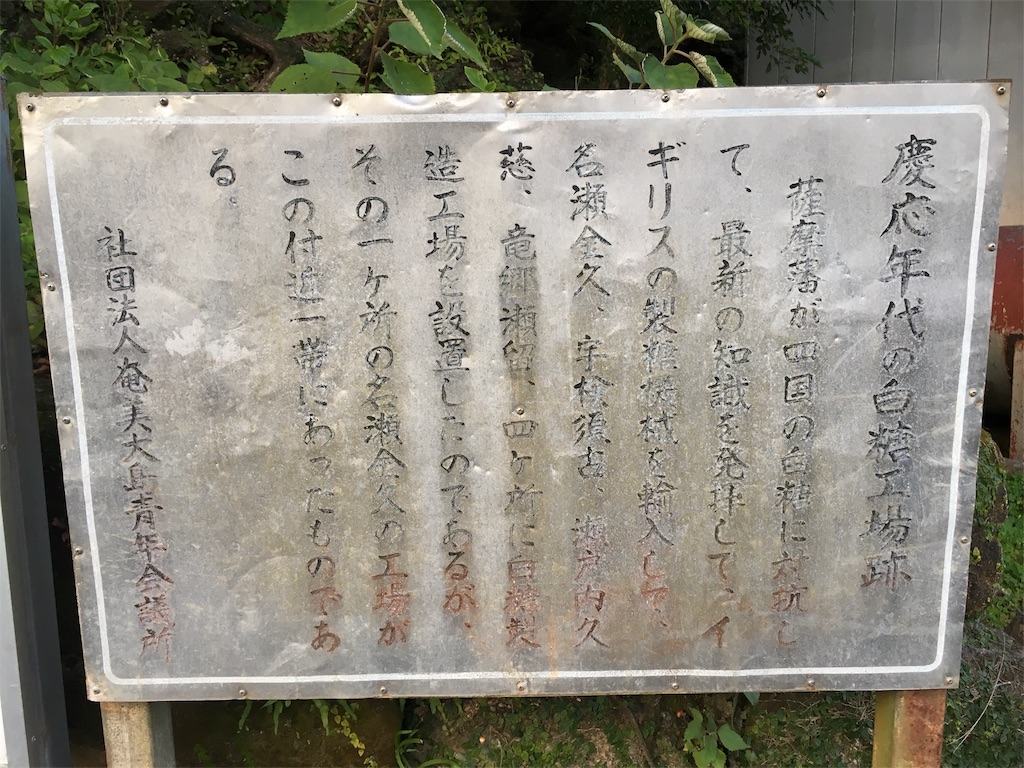 慶応年代の白糖工場跡
薩摩藩が四国の白糖に対抗し
て、最新の知識を発揮して、イ
ギリスの製糖機械を輸入して、
名瀬金久、宇検須古、瀬戸内久
慈、竜郷瀬留、四ヶ所に白糖製
造工場を設置したのであるが、
その一ヶ所の名瀬金久の工場が
この付近一帯にあったものであ
る。
社団法人奄美大島青年会議所